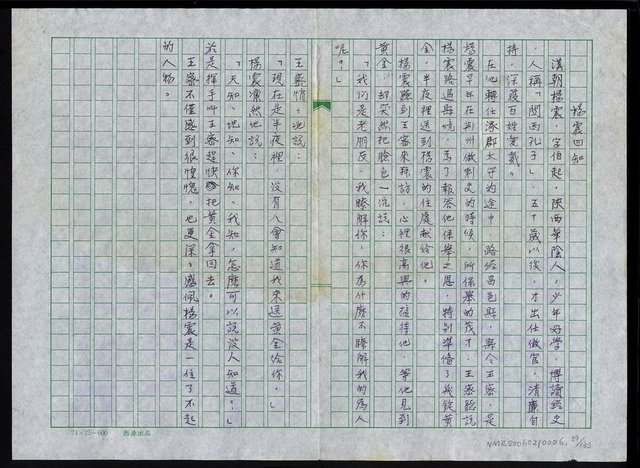 楊震四知
漢朝楊震，字伯起，陝西華陰人，少年好學，博讀經史
，人稱「關西孔子」，五十歲以後，才出任做官，清廉自
持，深獲百姓愛戴。
在他轉任涿郡太守的途中，路經昌邑縣，縣令王密，是
楊震早年在荊州做刺史的時候，所保舉的茂才，王密聽說
楊震路過縣境，為了報答他保舉之恩，特別準備了幾錠黃
金，半夜裡送到楊震的住處獻給他。
楊震聽到王密來拜訪，心裡很高興的接待他，等他見到
黃金，卻突然把臉色一沉說：
「我們是老朋友，我瞭解你，你為什麼不瞭解我的為人
呢？」
王密悄悄地說：
「現在是半夜裡，沒有人會知道我來送黃金給你。」
楊震凜然地說：
「天知、地知、你知、我知，怎麼可以說沒人知道？」
於是揮手叫王密趕快把黃金拿回去。
王密不僅感到很慚愧，也更深深感佩楊震是一位了不起
的人物。
24×25=600
NMTL20050210006
39/133